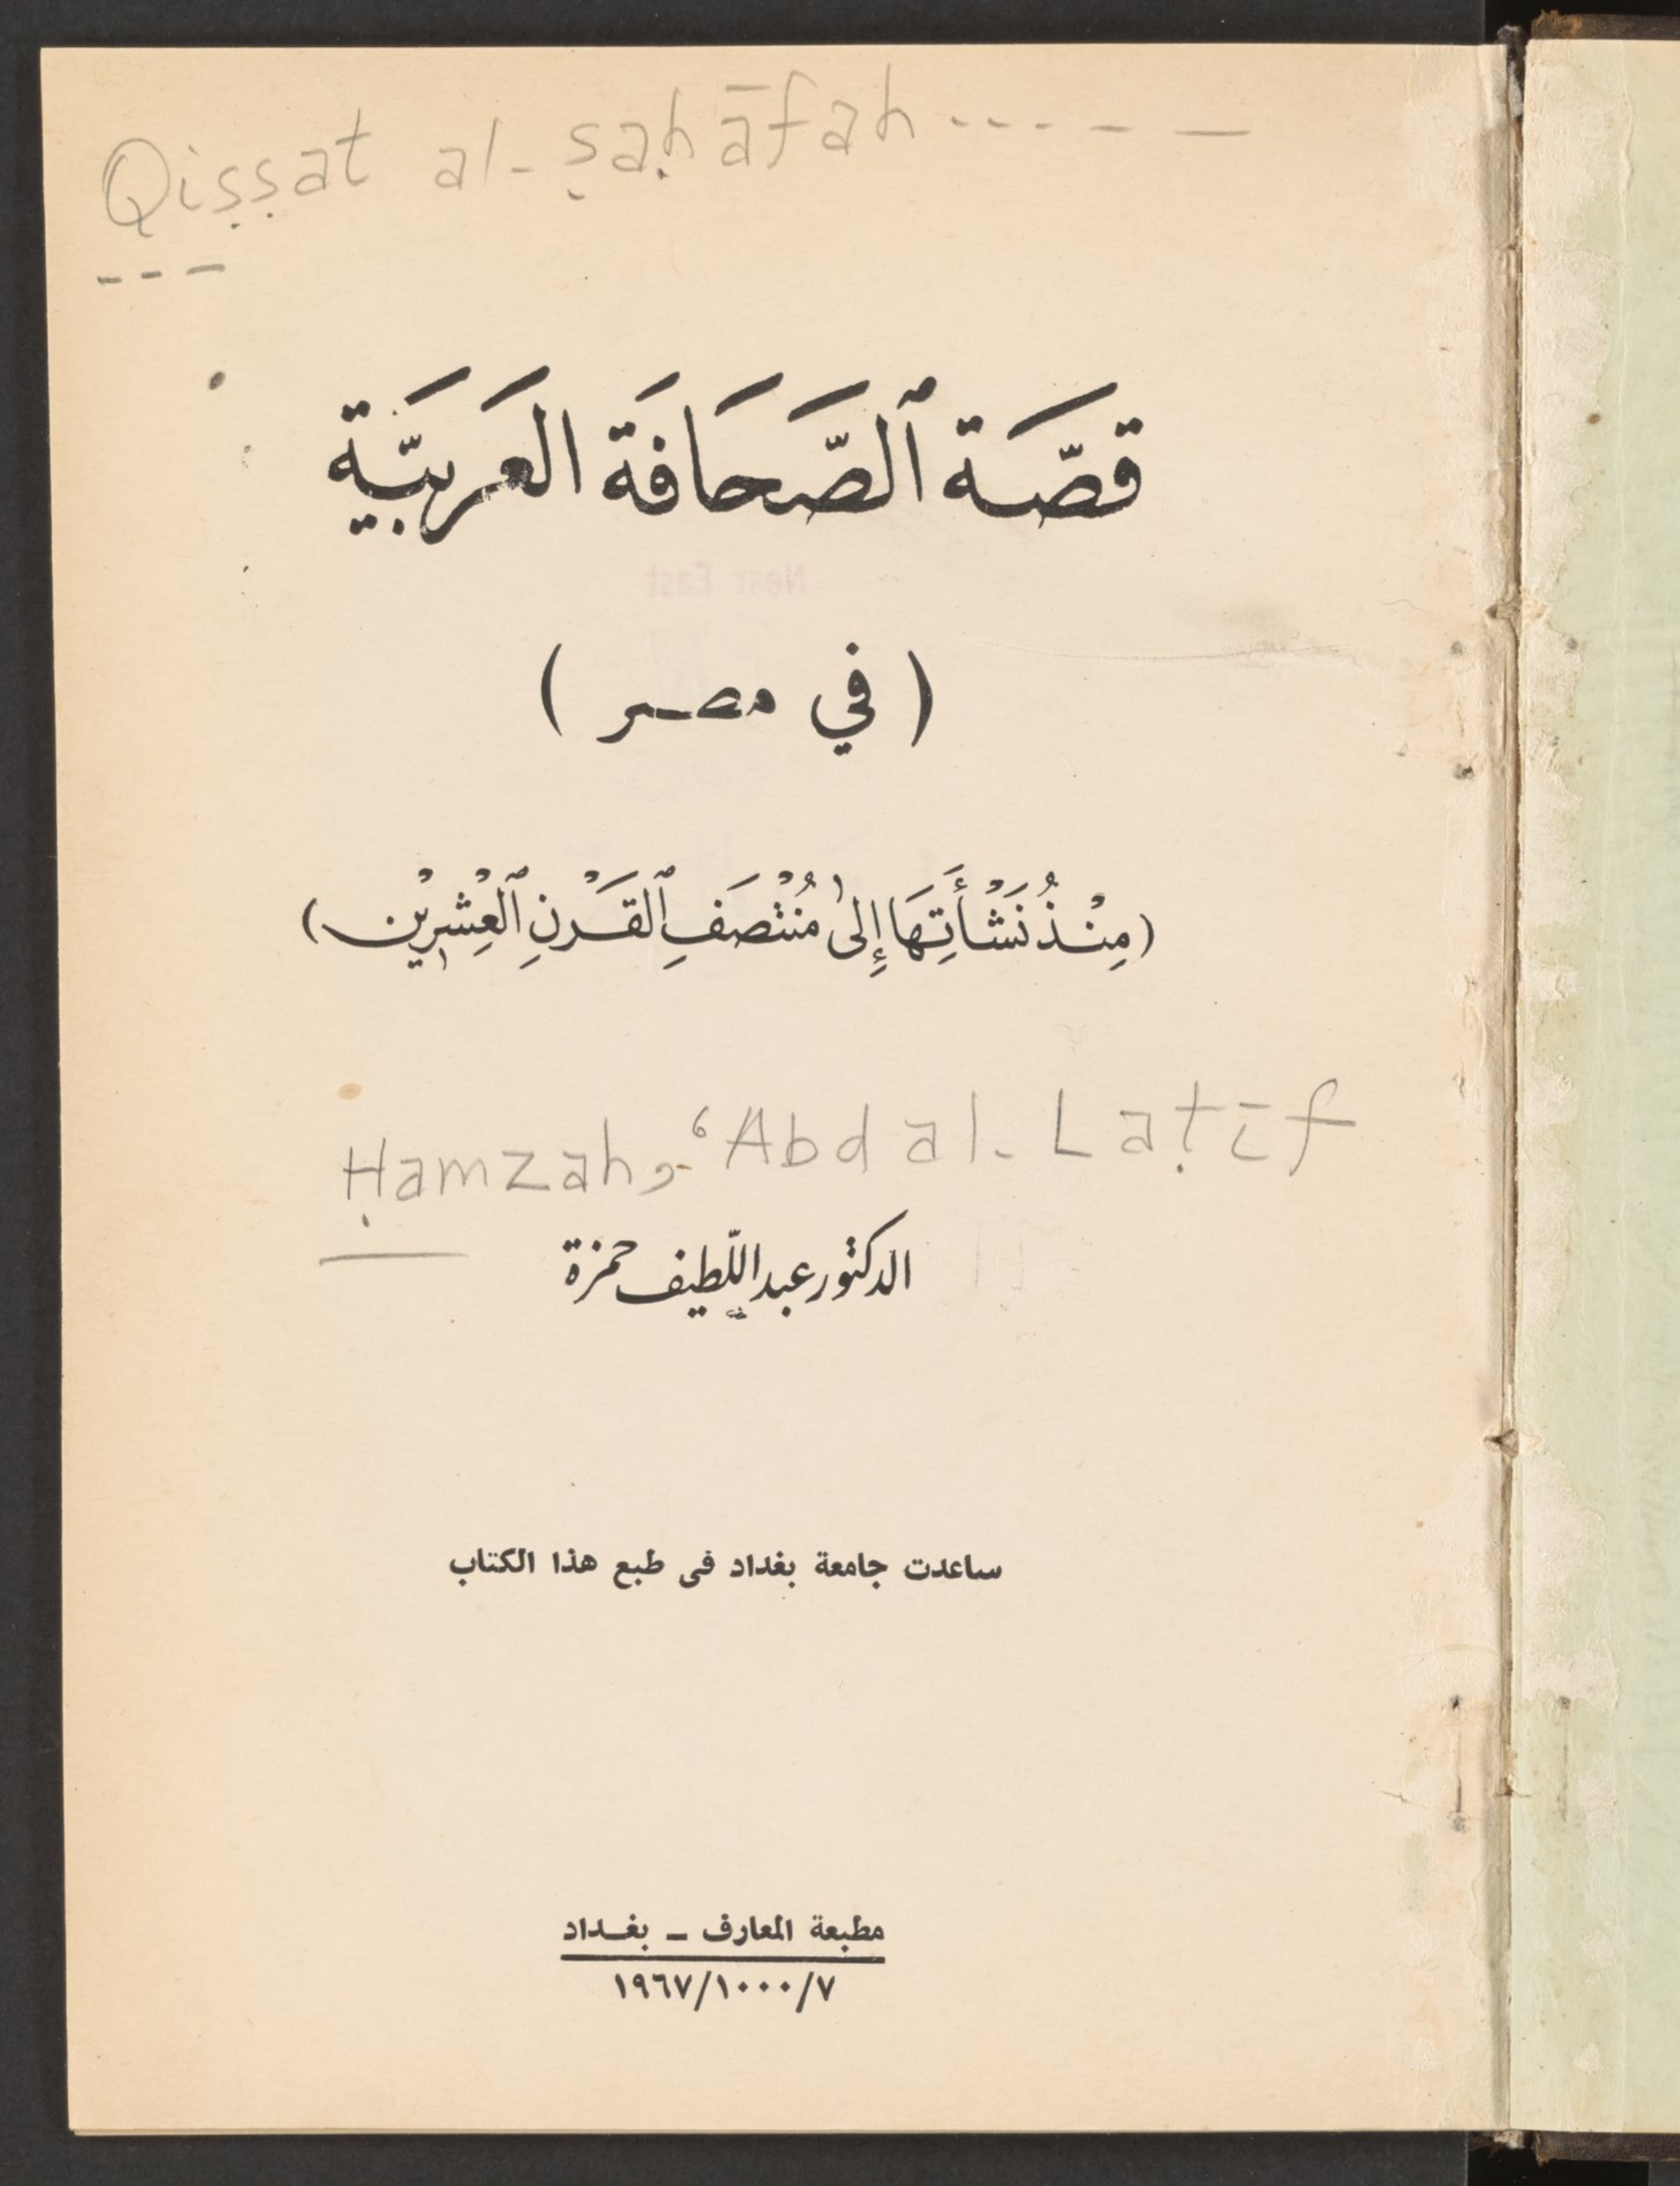 Qiṣṣat al-ṣaḥāfah ----- —
---
قصَّة ٱلصَّحَافَة العَربيَّة
( في مصر )
(مِنْذُ نَشْأَتِهَا إِلىٰ مُنْتْصَفِ ٱلقَرْنِ ٱلْعِشْرِيْن)
Ḥamzah, ʿAbd al-Laṭīf
الدكتور عبد اللّطيف حمزة
ساعدت جامعة بغداد فى طبع هذا الكتاب
مطبعة المعارف ــ بغــداد
١٩٦٧/١٠٠٠/٧